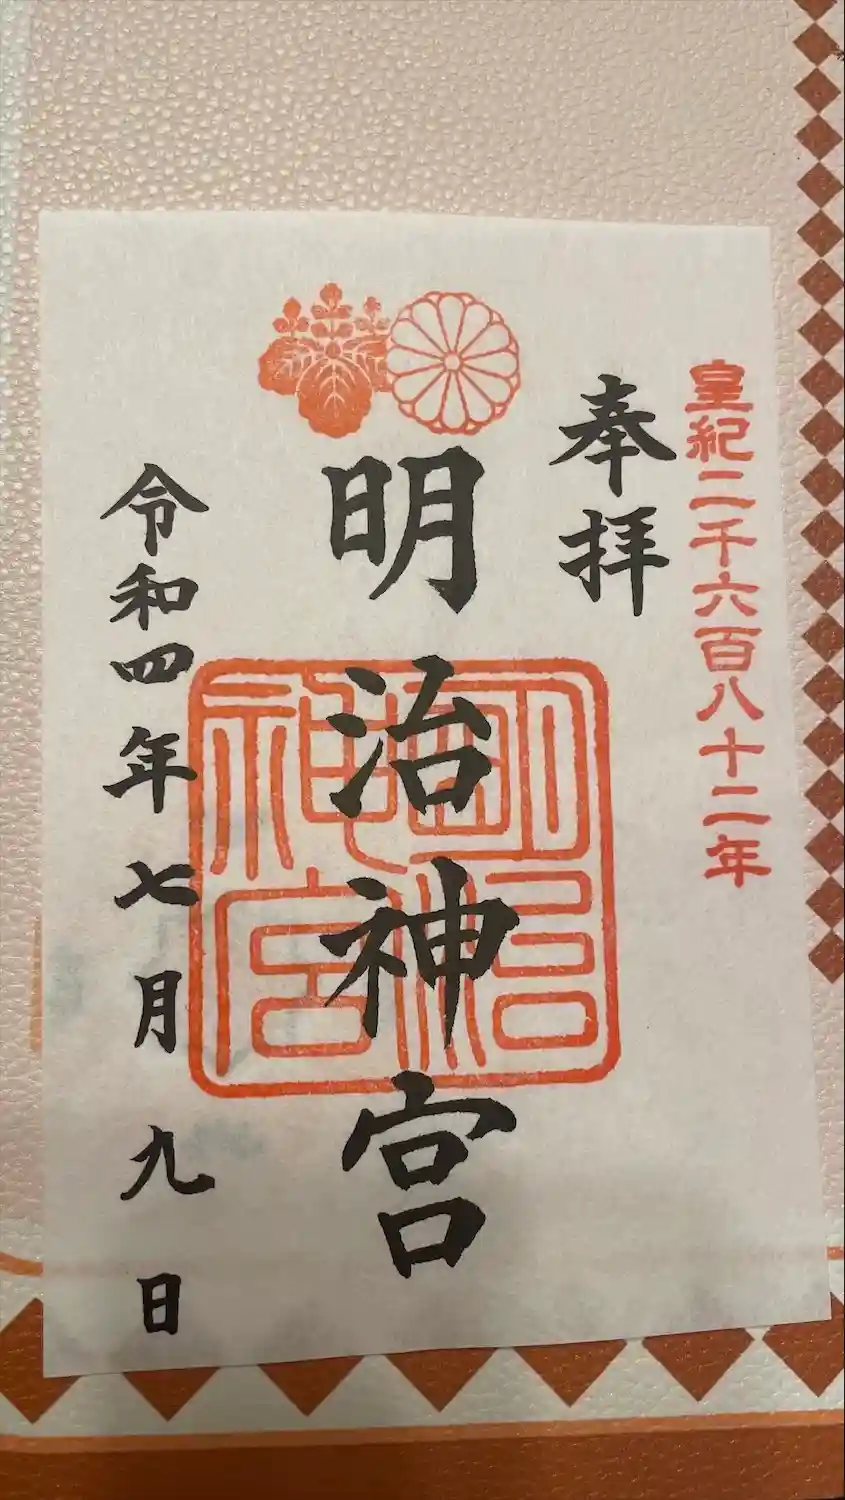 皇紀二千六百八十二年
奉拝
明治神宮
明治神宮
令和四年七月九日